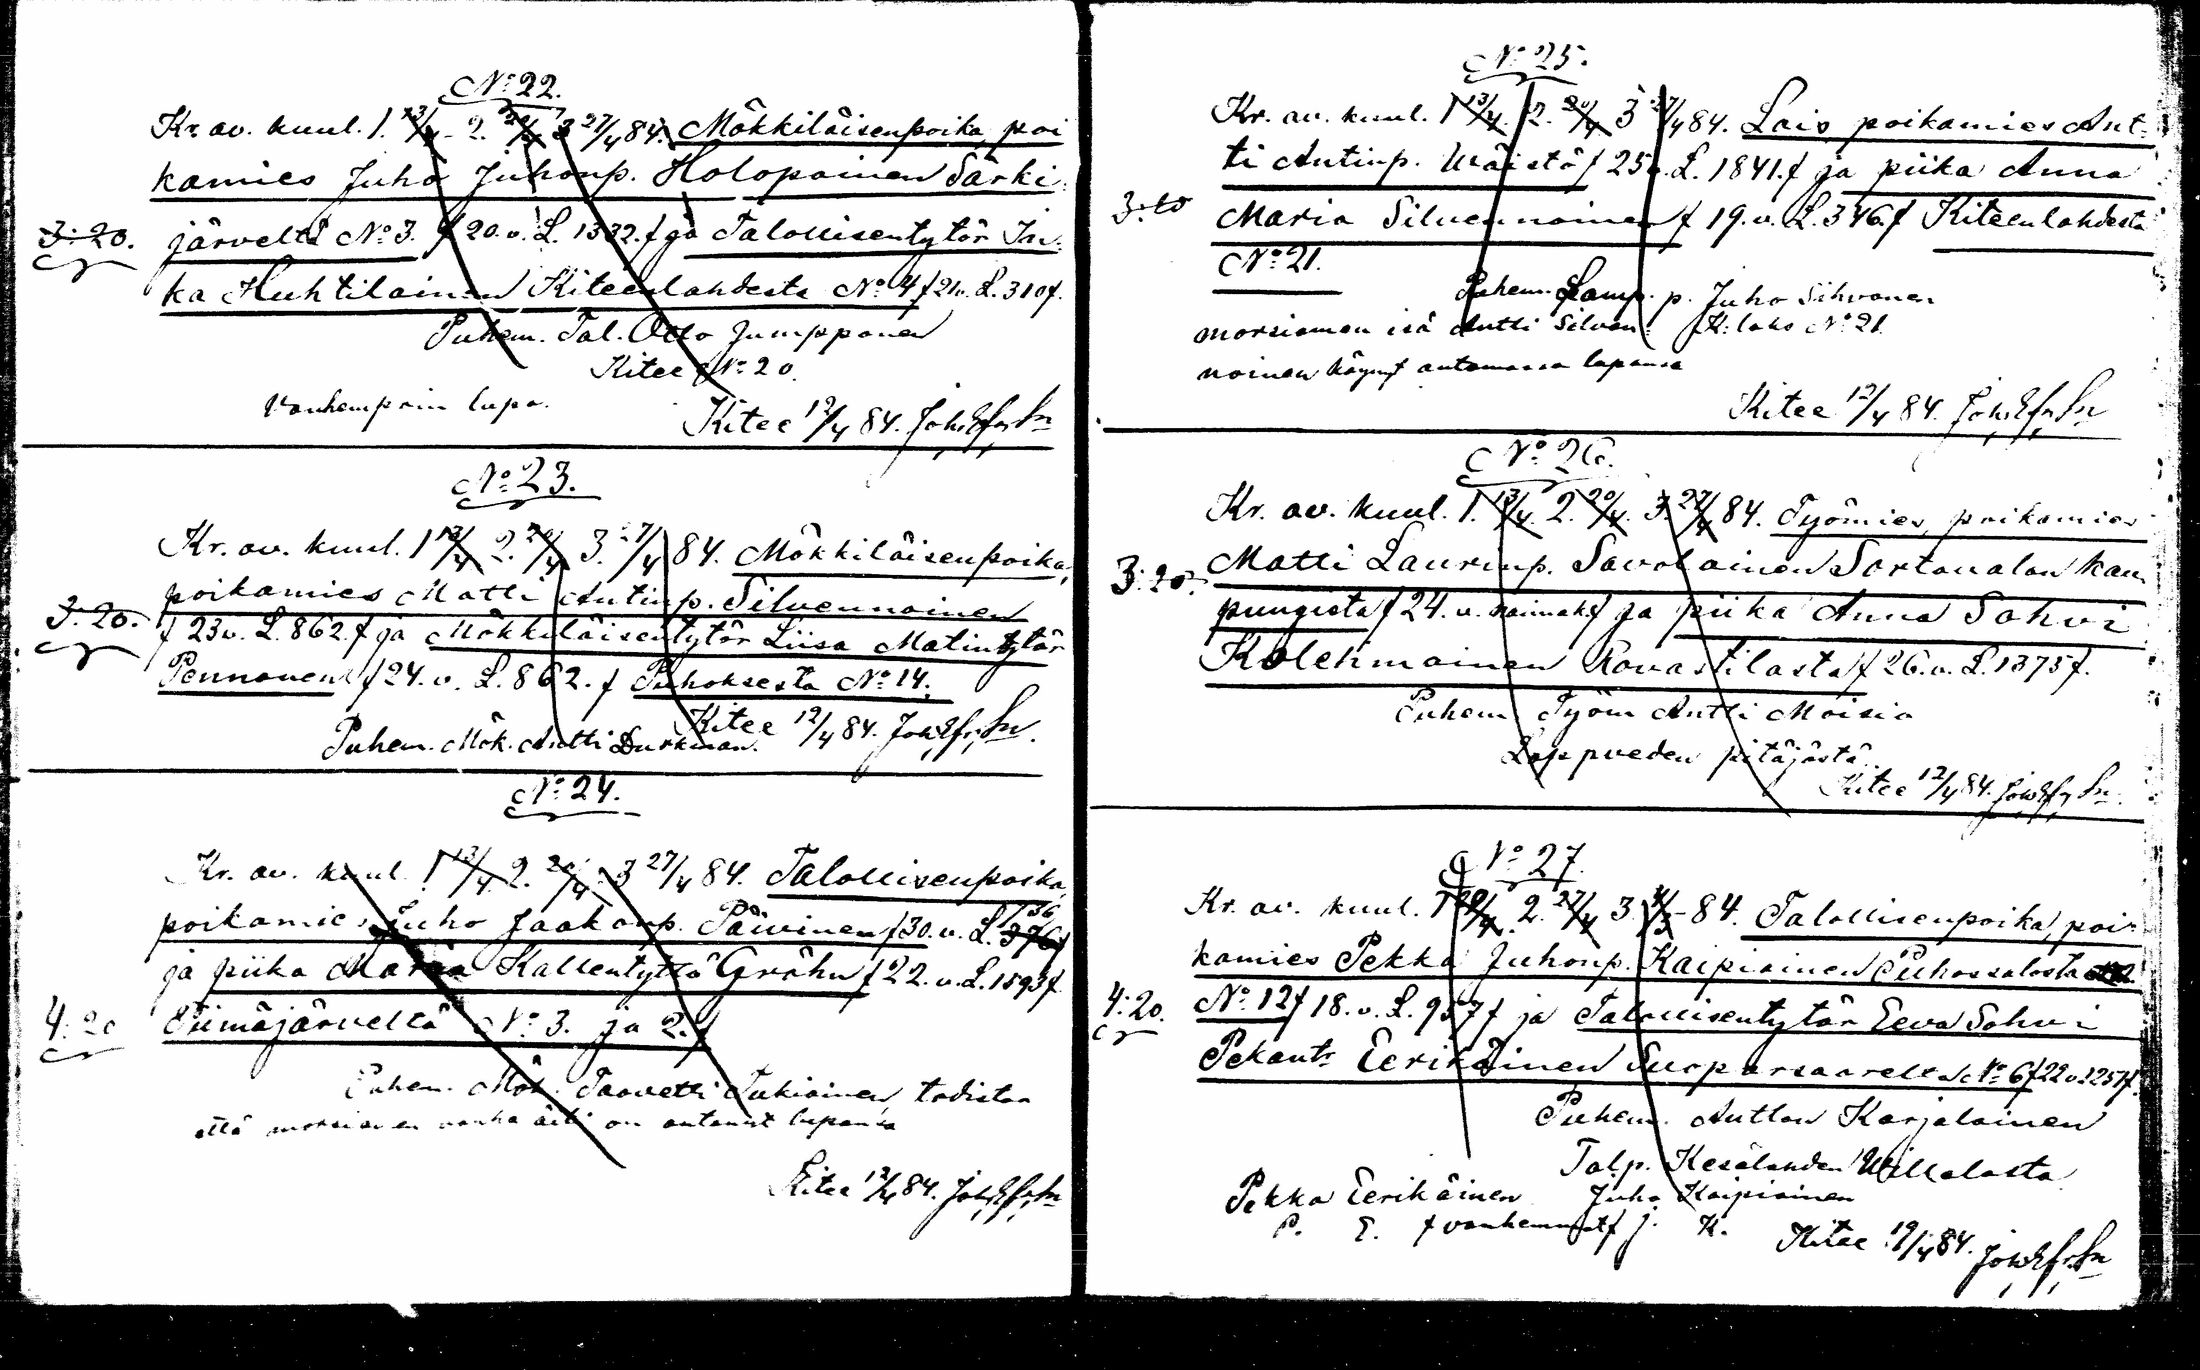 No 22.
Kr. av. kuul. 1. 13/4 - 2. 20/4 3 27/4 84. Mökkiläisenpoika, poi
kamies Juho Juhonp. Holopainen Särki-
3:20. järveltä No 3. f 20. v. L. 1332. f ja Talollisentytär In-
ka Huhtilainen Kiteenlahdesta No 4 f 21v. L. 310f.
Puhem. Tal. Otto Jumpponen
Kitee No 20.
Vanhempain lupa.
Kitee 12/4 84.
No 23.
Kr. av. kuul. 1 13/4 2. 20/4 3. 27/4 84. Mökkiläisenpoika,
poikamies Matti Antinp. Silvennoinen
3:20. f 23v. L. 862. f ja Mökkiläisentytär Liisa Matintytär
Pennanen f 24. v. L. 862. f Puhoksesta No 14.
Kitee 12/4 84.
Puhem. Mök. Antti Durkman.
No 24.
Kr. av. kuul. 1 13/4 2. 20/4 3 27/4 84. Talollisenpoika,
poikamies Juho Jaakonp. Päivinen f 30. v. L. 376
ja piika Maria Kallentyttö Gröhn f 22. v. L. 1593f.
4:20 Tiimäjärveltä No 3. ja 2. f
Puhem. Mök. Taavetti Tukiainen, todistaa
että morsiamen vanha äiti on antanut lupansa
Kitee 12/4 84.
No 25.
Kr. av. kuul. 1 13/4. 2. 20/4 3 27/4 84. Lois, poikamies Ant-
ti Antinp. Wäistö f 25v. L. 1841. f ja piika Anna
3:20 Maria Silvennoinen f 19. v. L. 346. f Kiteenlahdesta
No 21.
Puhem. Lamp. p. Juho Sihvonen
morsiaman isä Antti Silven- K:laks No 21
noinen käynyt antamassa lupansa
Kitee 12/4 84.
No 26.
Kr. av. kuul. 1. 13/4. 2. 20/4. 3. 27/4 84. Työmies, poikamies
Matti Laurinp. Savolainen Sortavalan kau-
3:20. pungista f 24. v. f ja piika Anna Sohvi
Kolehmainen Rovastilasta f 26. v. L. 1375f.
Puhem Työm Antti Moisio
Loppveden pitäjästä.
Kitee 12/4 84.
No 27.
Kr. av. kuul. 1 20/4. 2. 27/4 3. 4/5 - 84. Talollisenpoika, poi-
kamies Pekka Juhonp. Kaipiainen Puhossalosta
4:20. No 12 f 18. v. L. 957 f ja Talollisentytär Eeva Sohvi
Pekantr Eerikäinen Suoparsaarelta No 6 f 22 v. L 257f.
Puhem. Antton Karjalainen
Talp. Kesälahden Willalasta
Pekka Eerikäinen Juho Kaipiainen
P. E. f vanhemmat f J. K.
Kitee 19/4 84.